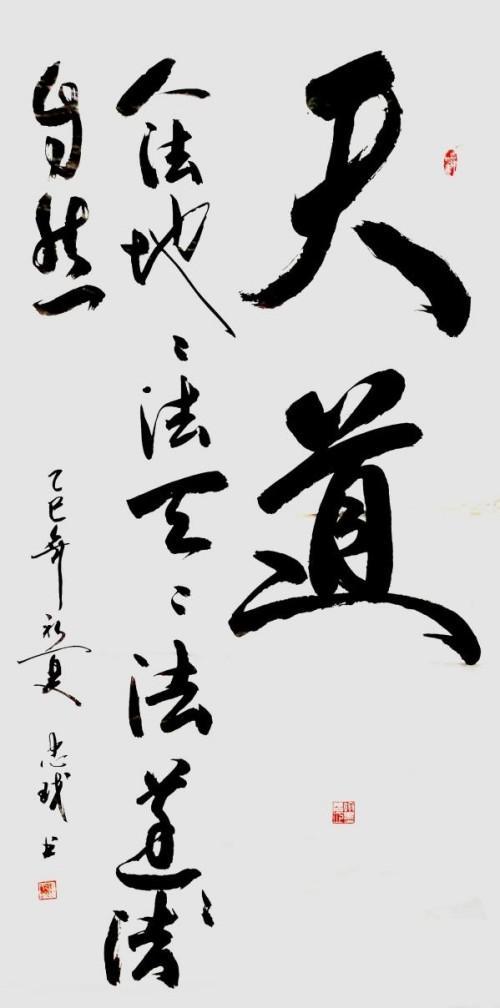 天道
人法地〻法天〻法道〻法
自然
乙巳年初夏 忠 书